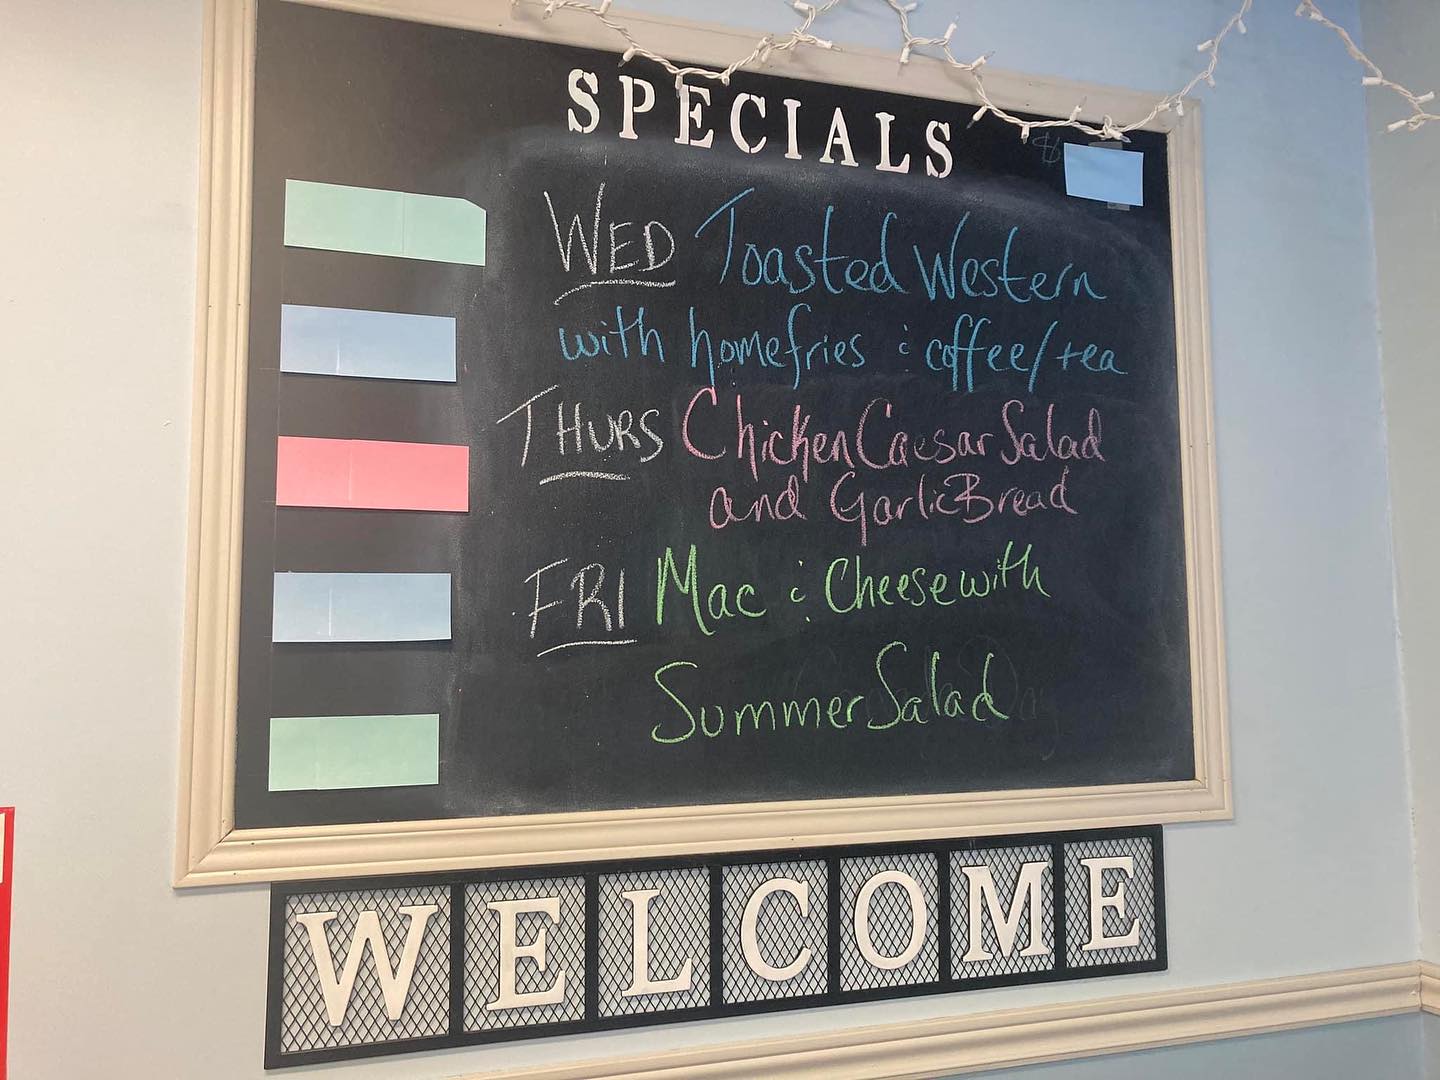 SPECIALS
WED Toasted Western
with homefries & coffee/tea
THURS Chicken Caesar Salad
and Garlic Bread
FRI Mac & Cheese with
Summer Salad
WELCOME